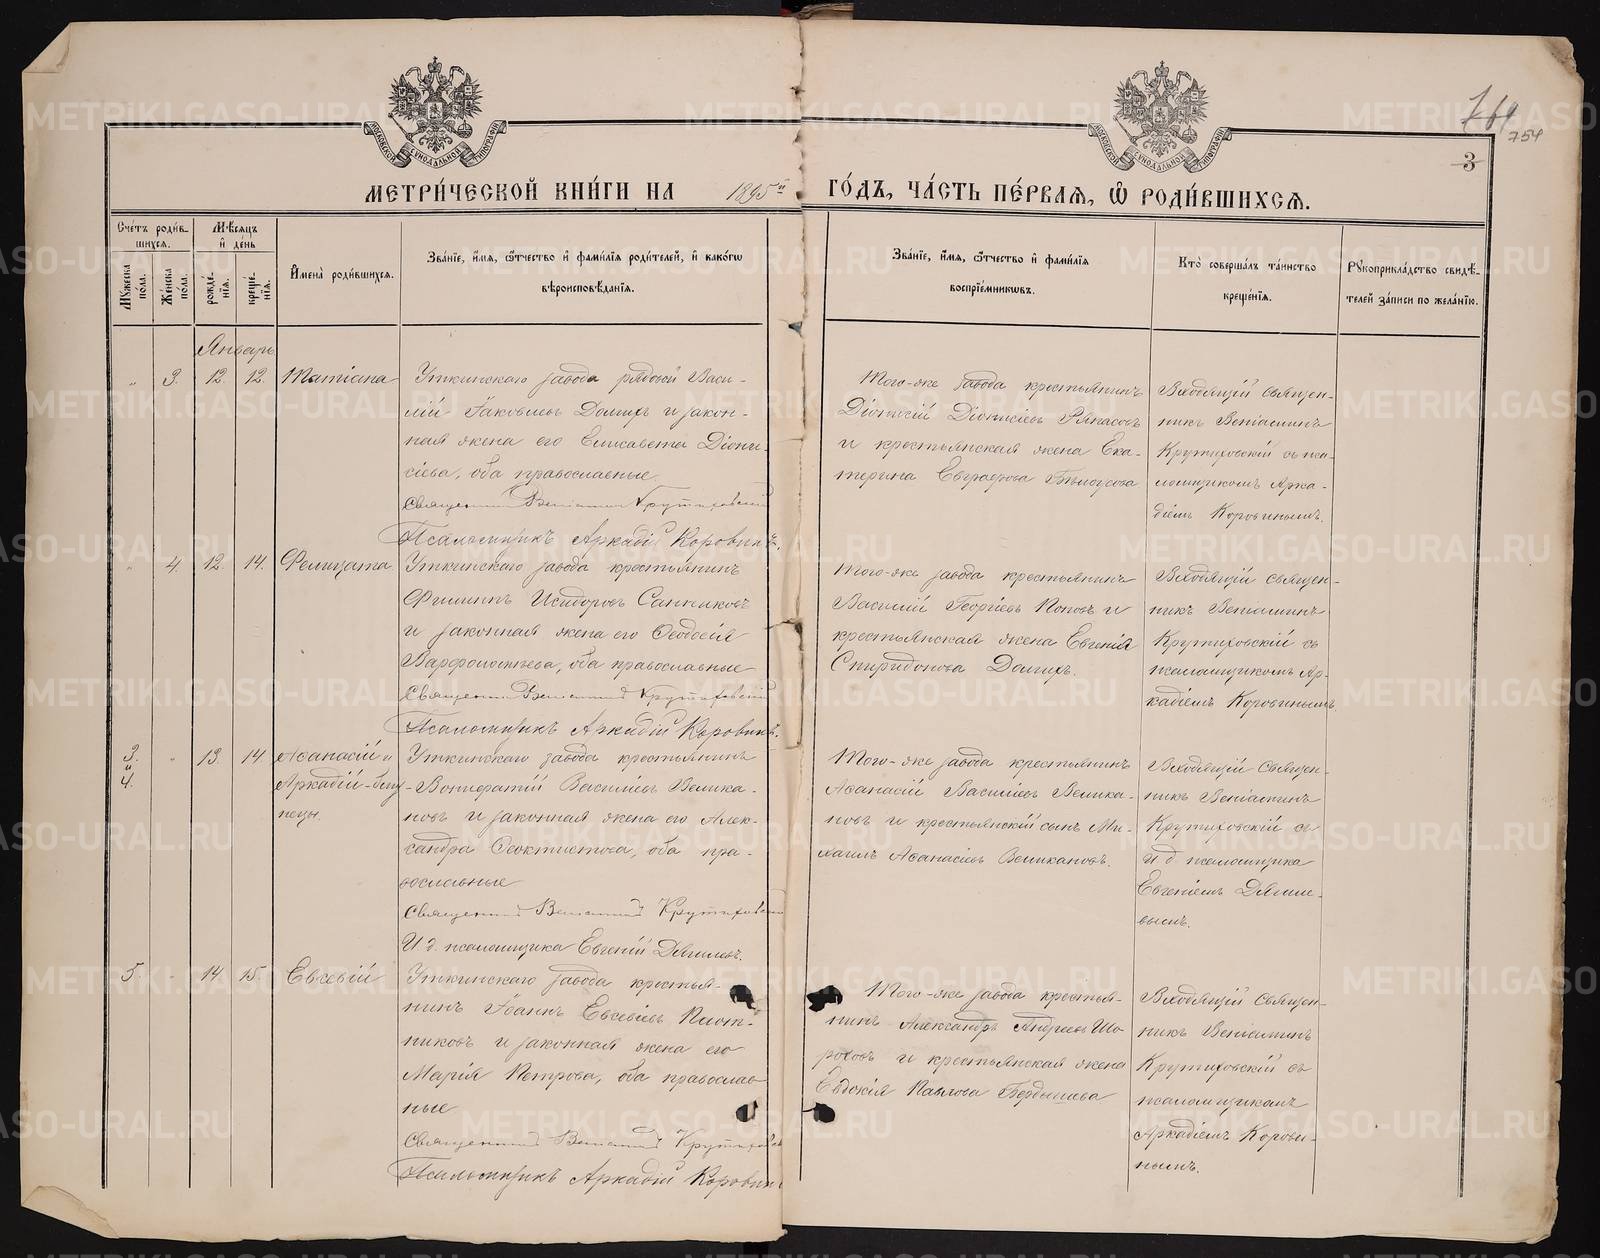 764
754
3
МОСКОВСКОЙ СѴНОДАЛЬНОЙ ТИПОГРАФІИ
МОСКОВСКОЙ СѴНОДАЛЬНОЙ ТИПОГРАФІИ
МЕТРИ́ЧЕСКОЙ КНИ́ГИ НА 1895й ГО́ДЪ, ЧА́СТЬ ПЕ́РВАѦ, Ѡ҆ РОДИ́ВШИХСѦ.
Сче́тъ роди́в-
шихсѧ.
Мѣ́сѧцъ
и҆ де́нь
Мꙋ́жеска
по́ла.
Же́нска
по́ла.
рожде́-
нїѧ.
креще́-
нїѧ.
И҆мена̀ роди́вшихсѧ.
Зва́нїе, и҆́мѧ, ѻ҆́тчество и҆ фами́лїѧ роди́телей, и҆ како́гѡ
вѣроисповѣ́данїѧ.
Зва́нїе, и҆́мѧ, ѻ҆́тчество и҆ фами́лїѧ
воспрїе́мникѡвъ.
Кто̀ соверша́лъ та́инство
креще́нїѧ.
Рꙋкоприкла́дство свидѣ́-
телей за́писи по жела́нїю.
Январь
„ 3. 12. 12. Татіана
Уткинскаго завода рядовой Васи-
лій Іаковлевъ Долихъ и закон-
ная жена его Елисавета Діони-
сіева, оба православные
Священникъ Веніаминъ Крутиховскій
Псаломщикъ Аркадій Коровинъ.
Того-же завода крестьянинъ
Діонисій Діонисіевъ Рякасовъ
и крестьянская жена Ека-
терина Евграфова Бѣлоусова
Входящій священ-
никъ Веніаминъ
Крутиховскій съ пса-
ломщикомъ Арка-
діемъ Коровинымъ.
„ 4. 12. 14. Фелицата
Уткинскаго завода крестьянинъ
Филиппъ Исидоровъ Санниковъ
и законная жена его Ѳеодосія
Варфоломеева, оба православные
Священникъ Веніаминъ Крутиховскій
Псаломщикъ Аркадій Коровинъ.
Того-же завода крестьянинъ
Василій Георгіевъ Поповъ и
крестьянская жена Евгенія
Спиридонова Долихъ.
Входящій священ-
никъ Веніаминъ
Крутиховскій съ
псаломщикомъ Ар-
кадіемъ Коровинымъ.
3. и 4. „ 13. 14. Аѳанасій и
Аркадій-близ-
нецы.
Уткинскаго завода крестьянинъ
Вонифатій Василіевъ Велика-
новъ и законная жена его Алек-
сандра Ѳеоктистова, оба пра-
вославные
Священникъ Веніаминъ Крутиховскій
И. д. псаломщика Евгеній Дягилевъ.
Того-же завода крестьянинъ
Аѳанасій Василіевъ Велика-
новъ и крестьянскій сынъ Ми-
хаилъ Аѳанасіевъ Великановъ.
Входящій Священ-
никъ Веніаминъ
Крутиховскій съ
И. д. псаломщика
Евгеніемъ Дягиле-
вымъ.
5. „ 14. 15. Евсевій
Уткинскаго завода крестья-
нинъ Іоаннъ Евсевіевъ Плот-
никовъ и законная жена его
Марія Петрова, оба православ-
ные
Священникъ Веніаминъ Крутиховскій
Псаломщикъ Аркадій Коровинъ
Того-же завода крестья-
нинъ Александръ Андреевъ Шо-
роховъ и крестьянская жена
Евдокія Павлова Бердышева
Входящій Священ-
никъ Веніаминъ
Крутиховскій съ
псаломщикомъ
Аркадіемъ Корови-
нымъ.
METRIKI.GASO-URAL.RU